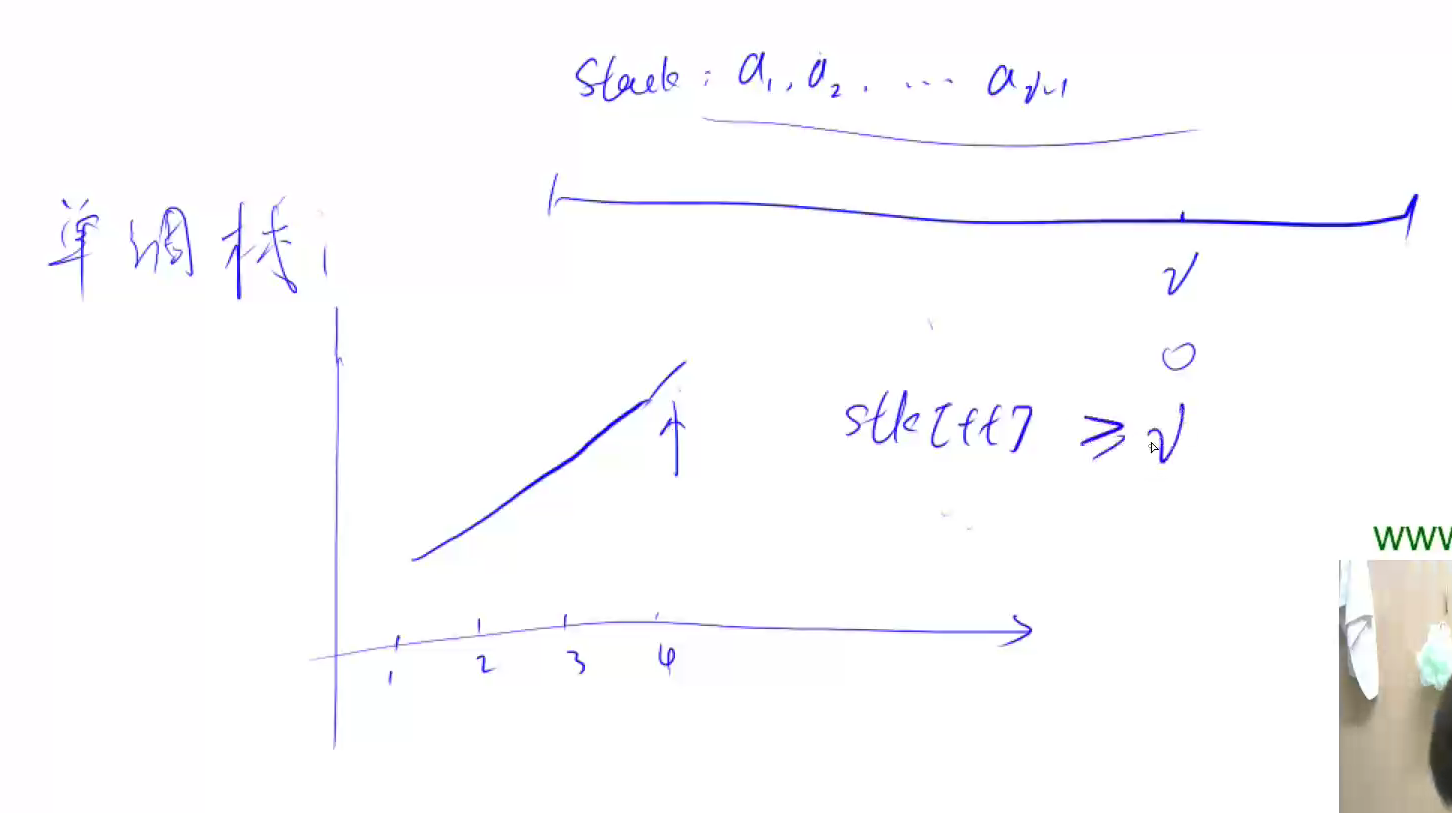 stack: a₁, a₂, ... aᵢ₋₁
单调栈:
i
0
stk[tt] ≥ i
1 2 3 4
www